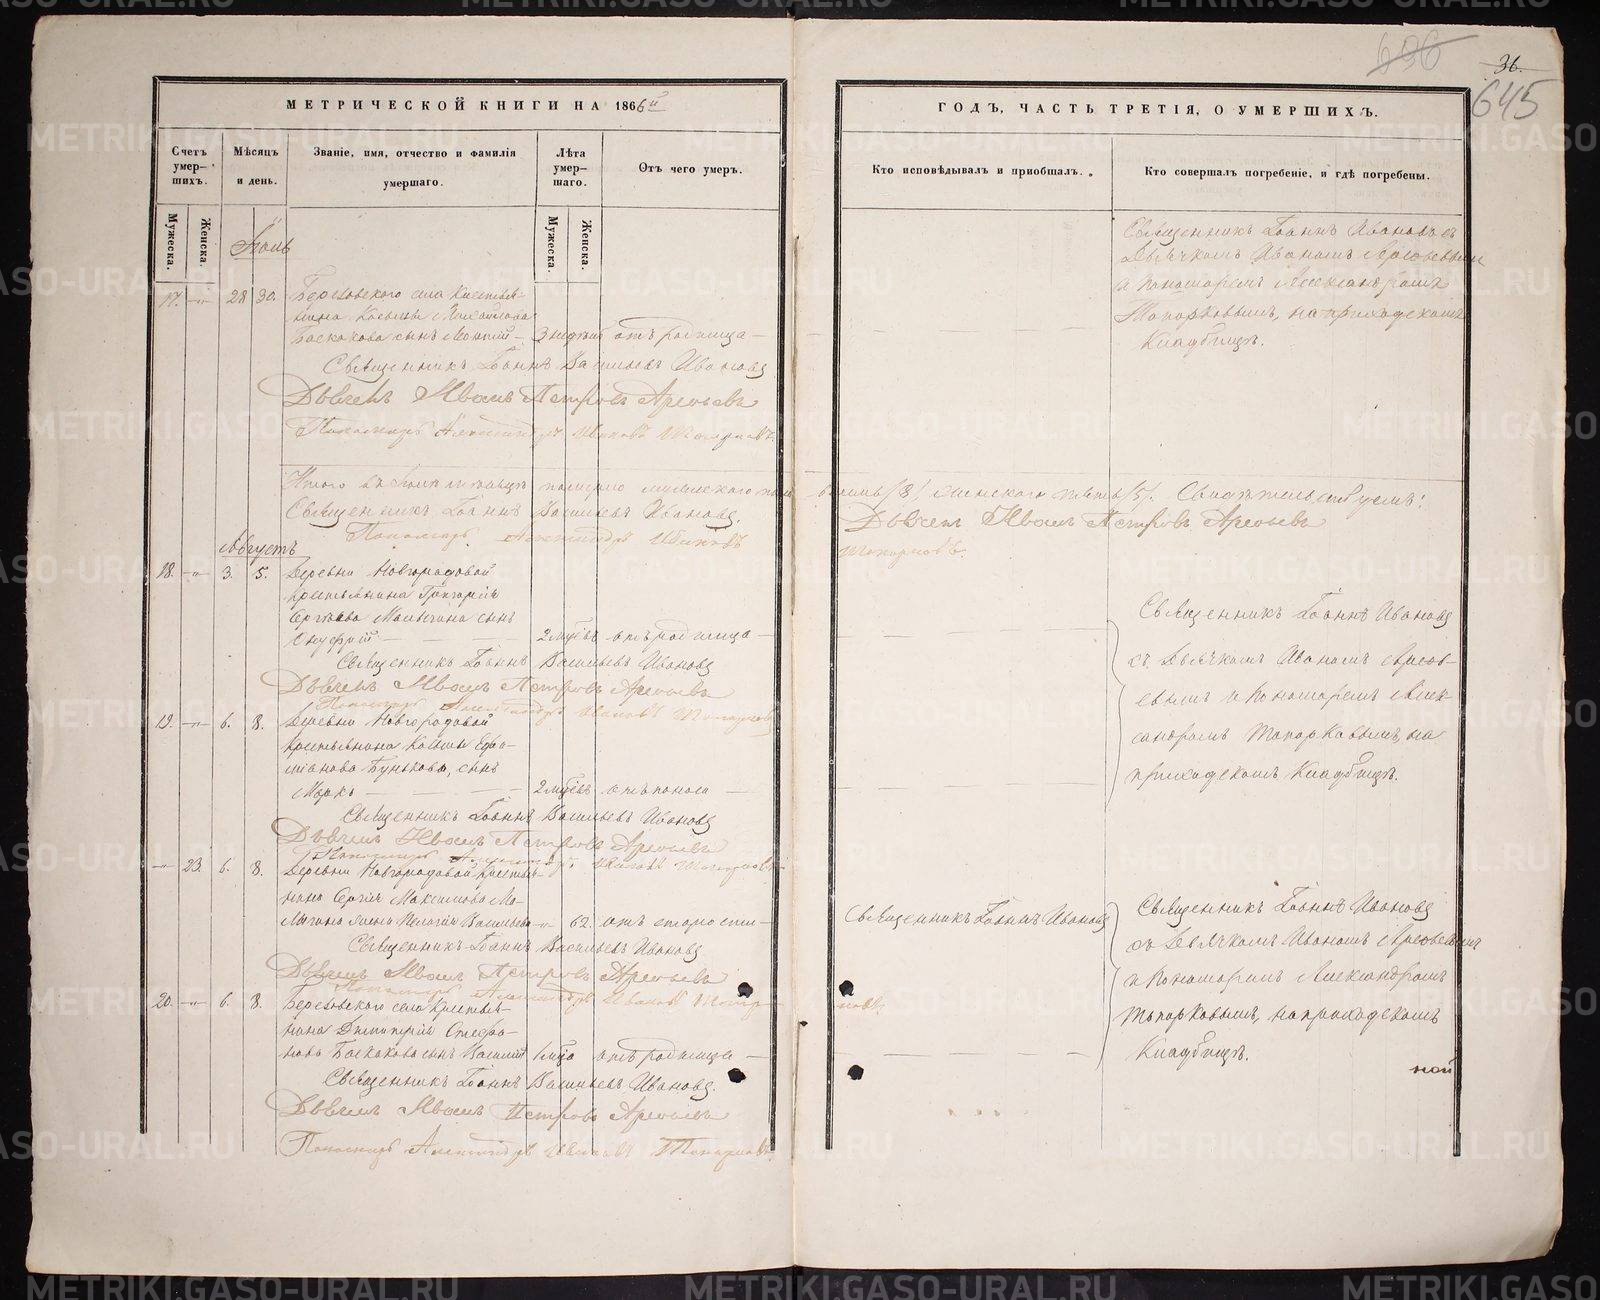 636
36.
645
МЕТРИЧЕСКОЙ КНИГИ НА 1866й
ГОДЪ, ЧАСТЬ ТРЕТІЯ, О УМЕРШИХЪ.
Счетъ умер-шихъ.
Мѣсяцъ и день.
Званіе, имя, отчество и фамилія умершаго.
Лѣта умер-шаго.
Отъ чего умеръ.
Кто исповѣдывалъ и пріобщалъ.
Кто совершалъ погребеніе, и гдѣ погребены.
Мужеска.
Женска.
Мужеска.
Женска.
Іюль
17. — 28 30. села Крестья-
нина
сынъ — 3 недѣль отъ родимца —
Священникъ Іоаннъ Васильевъ Ивановъ
Дьячекъ Иванъ Петровъ Арефьевъ
Пономарь Александръ Ивановъ Топорковъ
Священникъ Іоаннъ Ивановъ съ
Дьячкомъ Иваномъ Арефьевымъ
и Пономаремъ Александромъ
Топорковымъ, на приходскомъ
Кладбищѣ.
Итого въ Іюлѣ мѣсяцѣ померло мужескаго пола восемь (8) женскаго пять (5). Свидѣтельствуемъ:
Священникъ Іоаннъ Васильевъ Ивановъ.
Дьячекъ Иванъ Петровъ Арефьевъ
Пономарь Александръ Ивановъ Топорковъ.
Августъ
18. — 3. 5. Деревни Новгородовой
крестьянина Григорія
Сергѣева Малыгина сынъ
Онуфрій — 2 мѣсцвъ отъ родимца —
Священникъ Іоаннъ Васильевъ Ивановъ
Дьячекъ Иванъ Петровъ Арефьевъ
Пономарь Александръ Ивановъ Топорковъ
19. — 6. 8. Деревни Новгородовой
крестьянина
Бунькова, сынъ
Маркъ — 2 мѣсцвъ отъ поноса —
Священникъ Іоаннъ Васильевъ Ивановъ
Дьячекъ Иванъ Петровъ Арефьевъ
Пономарь Александръ Ивановъ Топорковъ
Священникъ Іоаннъ Ивановъ
съ Дьячкомъ Иваномъ Арефь-
евымъ и Пономаремъ Алек-
сандромъ Топорковымъ, на
приходскомъ Кладбищѣ.
— 23. 6. 8. Деревни Новгородовой крестья-
нина Сергія Максимова Ма-
лыгина жена Пелагія Васильева — 62. отъ старости —
Священникъ Іоаннъ Васильевъ Ивановъ
Дьячекъ Иванъ Петровъ Арефьевъ
Пономарь Александръ Ивановъ Топорковъ.
Священникъ Іоаннъ Ивановъ
Священникъ Іоаннъ Ивановъ
съ Дьячкомъ Иваномъ Арефьевымъ
и Пономаремъ Александромъ
Топорковымъ, на приходскомъ
Кладбищѣ.
20. — 6. 8. села Крестья-
нина Димитрія Стефа-
нова сынъ Василій 1 мѣсца отъ родимца —
Священникъ Іоаннъ Васильевъ Ивановъ.
Дьячекъ Иванъ Петровъ Арефьевъ
Пономарь Александръ Ивановъ Топорковъ
ной
METRIKI.GASO-URAL.RU